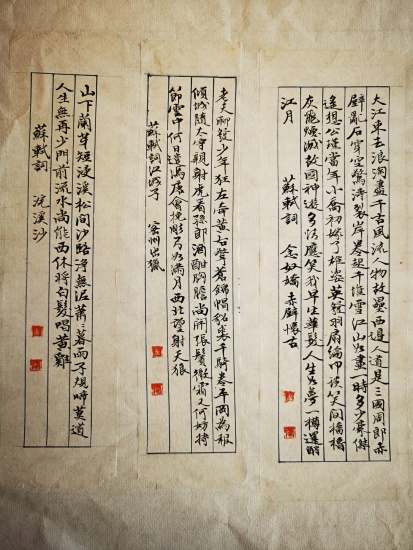 大江東去浪淘盡千古風流人物故壘西邊人道是三國周郎赤
壁亂石穿空驚濤裂岸卷起千堆雪江山如畫一時多少豪傑
遙想公瑾當年小喬初嫁了雄姿英發羽扇綸巾談笑間檣櫓
灰飛煙滅故國神遊多情應笑我早生華髮人生如夢一樽還酹
江月 蘇軾詞 念奴嬌 赤壁懷古
老夫聊發少年狂左牽黃右擎蒼錦帽貂裘千騎卷平岡為報
傾城隨太守親射虎看孫郎酒酣胸膽尚開張鬢微霜又何妨持
節雲中何日遣馮唐會挽雕弓如滿月西北望射天狼
蘇軾詞江城子 密州出獵
山下蘭芽短浸溪松間沙路淨無泥蕭〻暮雨子規啼莫道
人生無再少門前流水尚能西休將白髮唱黃雞
蘇軾 浣溪沙